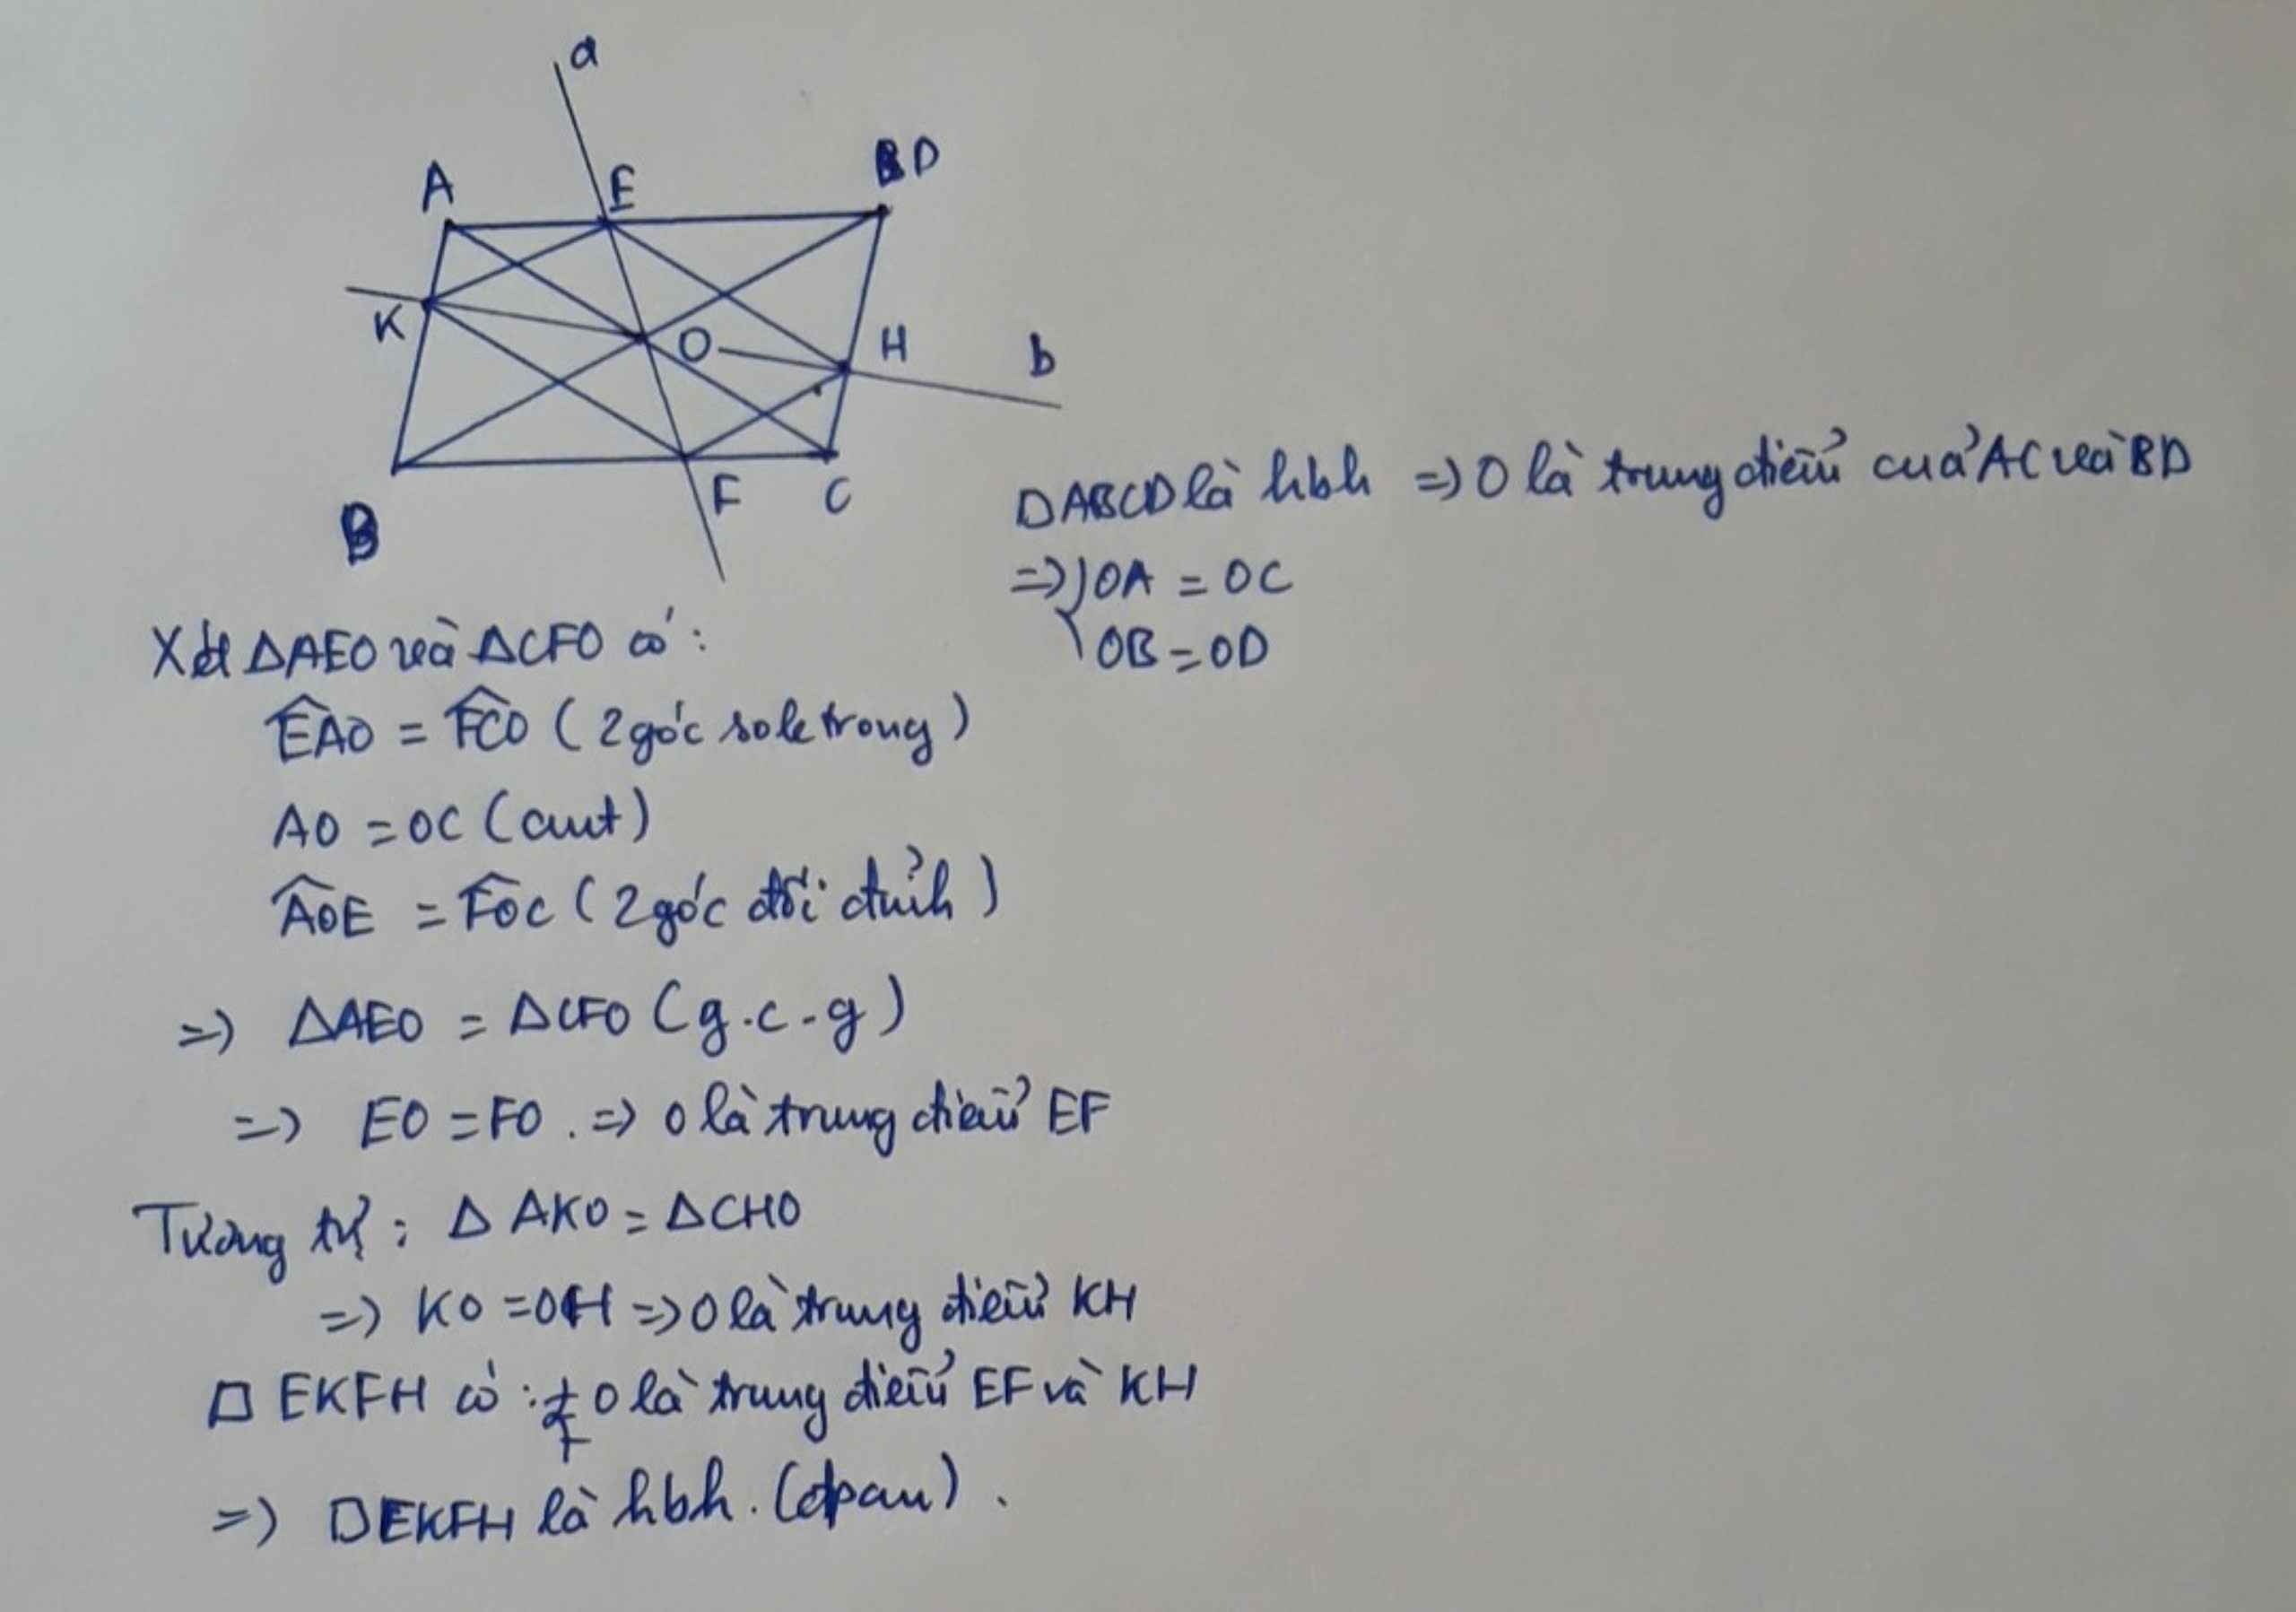 a
A E BD
K O H b
B F C
□ABCD là hbh => O là trung điểm của AC và BD
=> { OA = OC
OB = OD
Xét ΔAEO và ΔCFO có:
EAO = FCO (2 góc so le trong)
AO = OC (cmt)
AOE = FOC (2 góc đối đỉnh)
=> ΔAEO = ΔCFO (g.c.g)
=> EO = FO. => O là trung điểm EF
Tương tự: ΔAKO = ΔCHO
=> KO = OH => O là trung điểm KH
□ EKFH có: + O là trung điểm EF và KH
=> □EKFH là hbh. (đpcm).